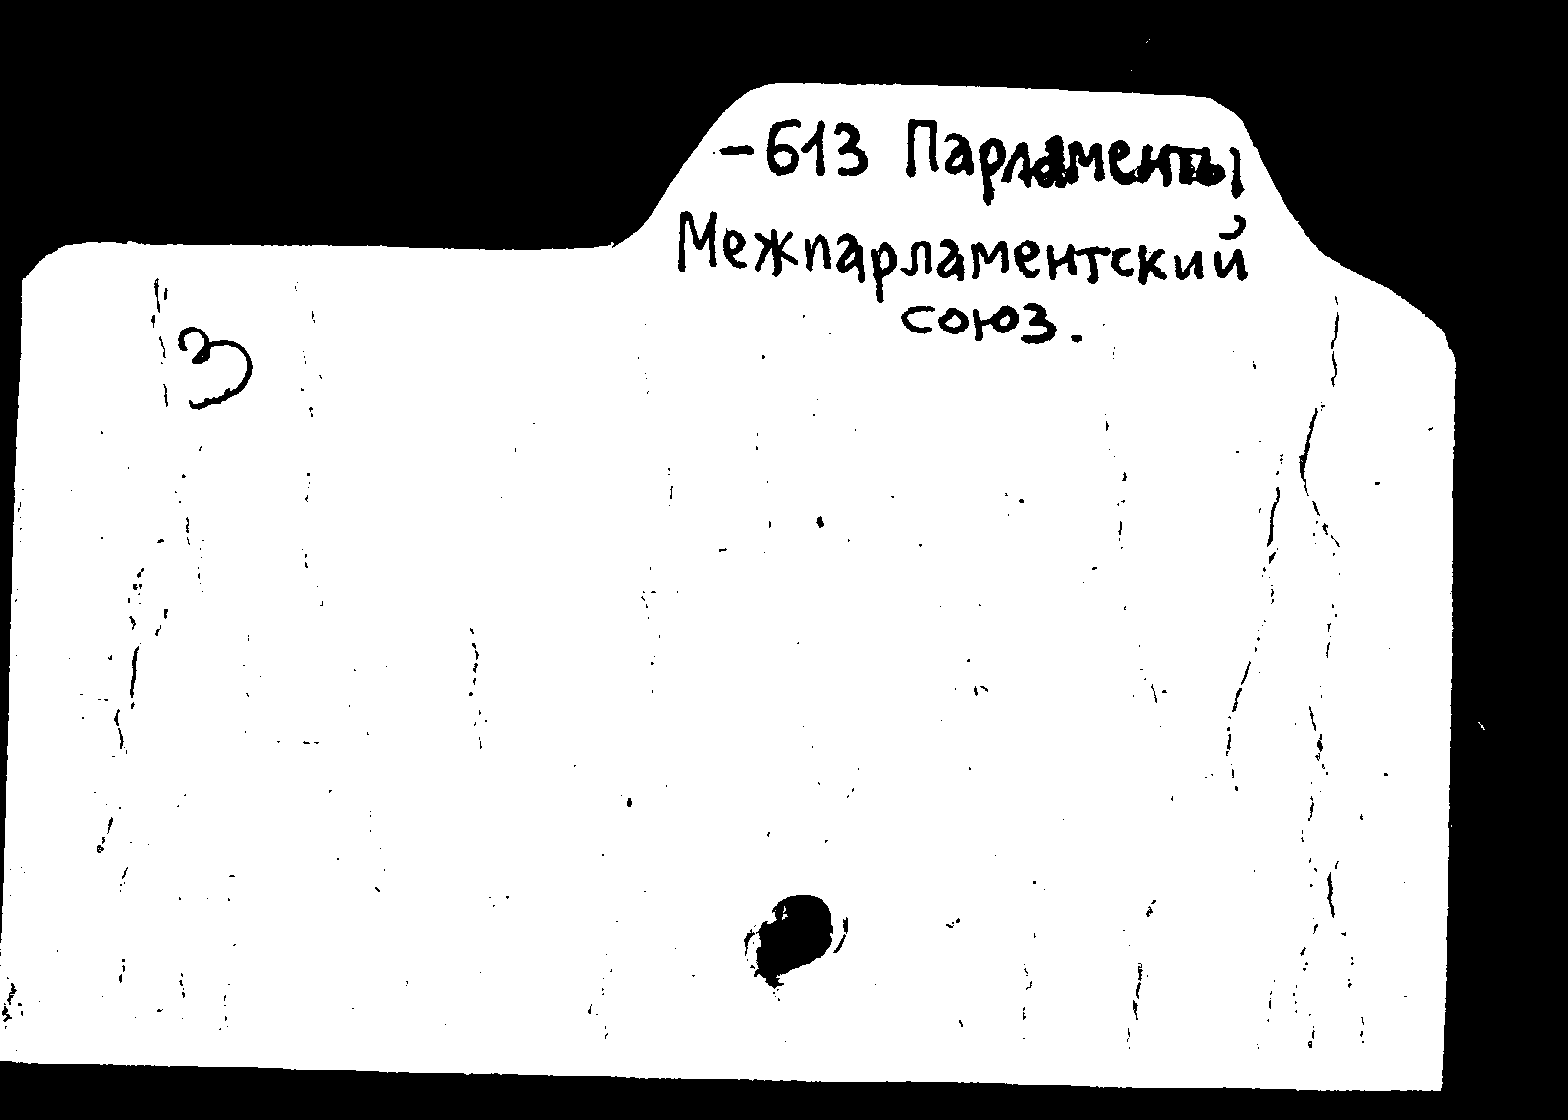 -613 Парламенты
Межпарламентский
союз.
3